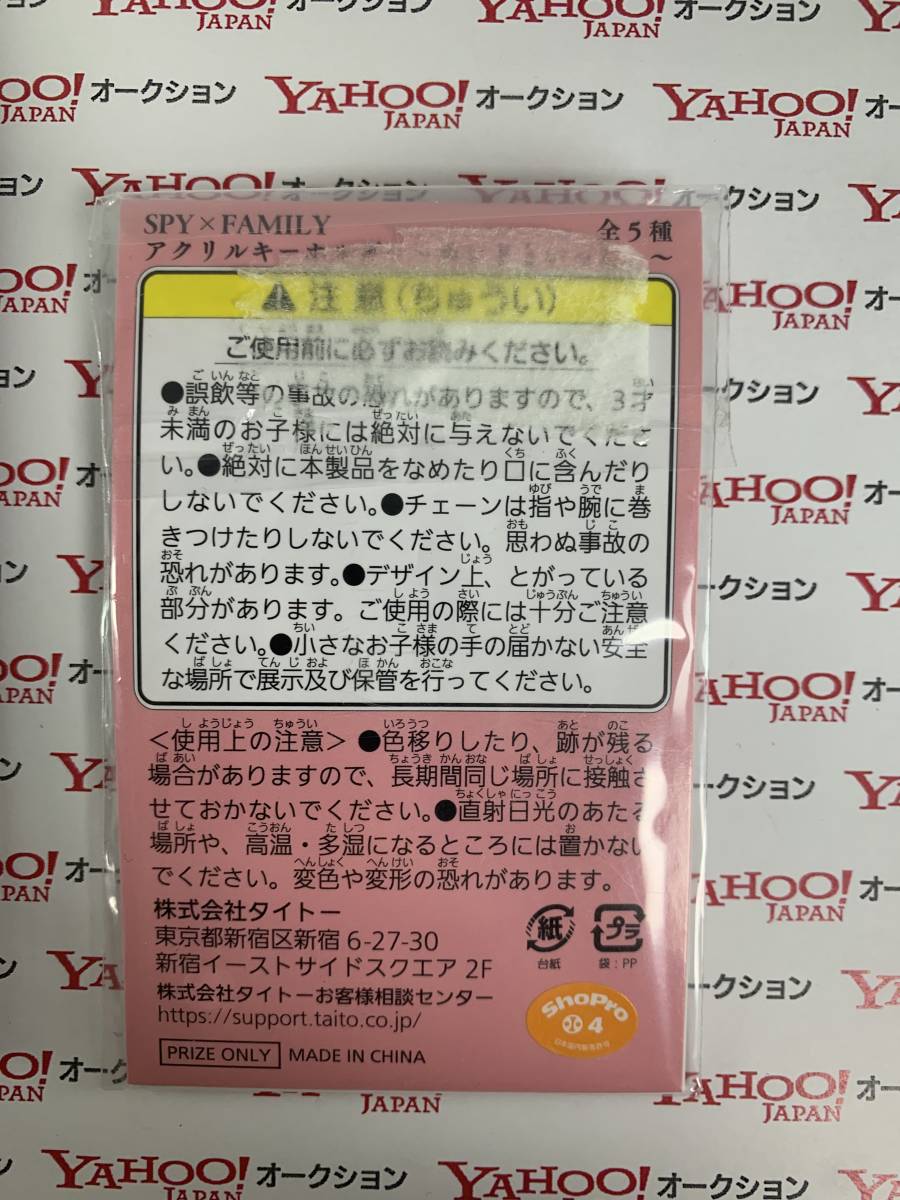 SPY×FAMILY 全5種
アクリルキーホルダー
注意(ちゅうい)
ご使用前に必ずお読みください。
●誤飲等の事故の恐れがありますので、3才
未満のお子様には絶対に与えないでくださ
い。●絶対に本製品をなめたり口に含んだり
しないでください。●チェーンは指や腕に巻
きつけたりしないでください。思わぬ事故の
恐れがあります。●デザイン上、とがっている
部分があります。ご使用の際には十分ご注意
ください。●小さなお子様の手の届かない安全
な場所で展示及び保管を行ってください。
<使用上の注意> ●色移りしたり、跡が残る
場合がありますので、長期間同じ場所に接触さ
せておかないでください。●直射日光のあたる
場所や、高温・多湿になるところには置かない
でください。変色や変形の恐れがあります。
株式会社タイトー
東京都新宿区新宿 6-27-30
新宿イーストサイドスクエア 2F
株式会社タイトーお客様相談センター
https://support.taito.co.jp/
PRIZE ONLY MADE IN CHINA
紙
台紙
プラ
袋:PP
ShoPro
4
YAHOO! JAPAN オークション